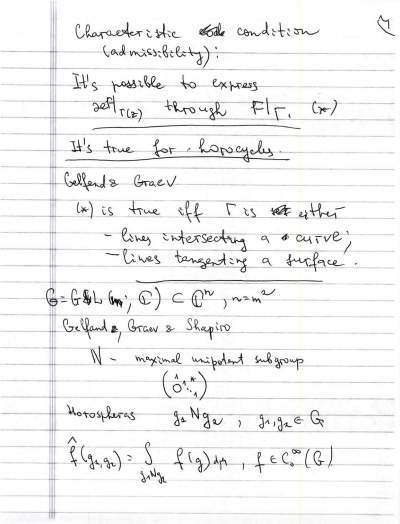 4
Characteristic condition
(admissibility):
It's possible to express
æf|Γ(z) through F|Γ. (*)
It's true for horocycles.
Gelfand & Graev
(*) is true iff Γ is either
- lines intersecting a curve;
- lines tangenting a surface.
G = GL(m; ℂ) ⊂ ℂⁿ, n=m²
Gelfand, Graev & Shapiro
N - maximal unipotent subgroup
(1 * 0 1)
Horospheres g₁Ng₂, g₁,g₂ ∈ G
f̂(g₁,g₂) = ∫_{g₁Ng₂} f(g)dμ, f ∈ C₀^∞(G)